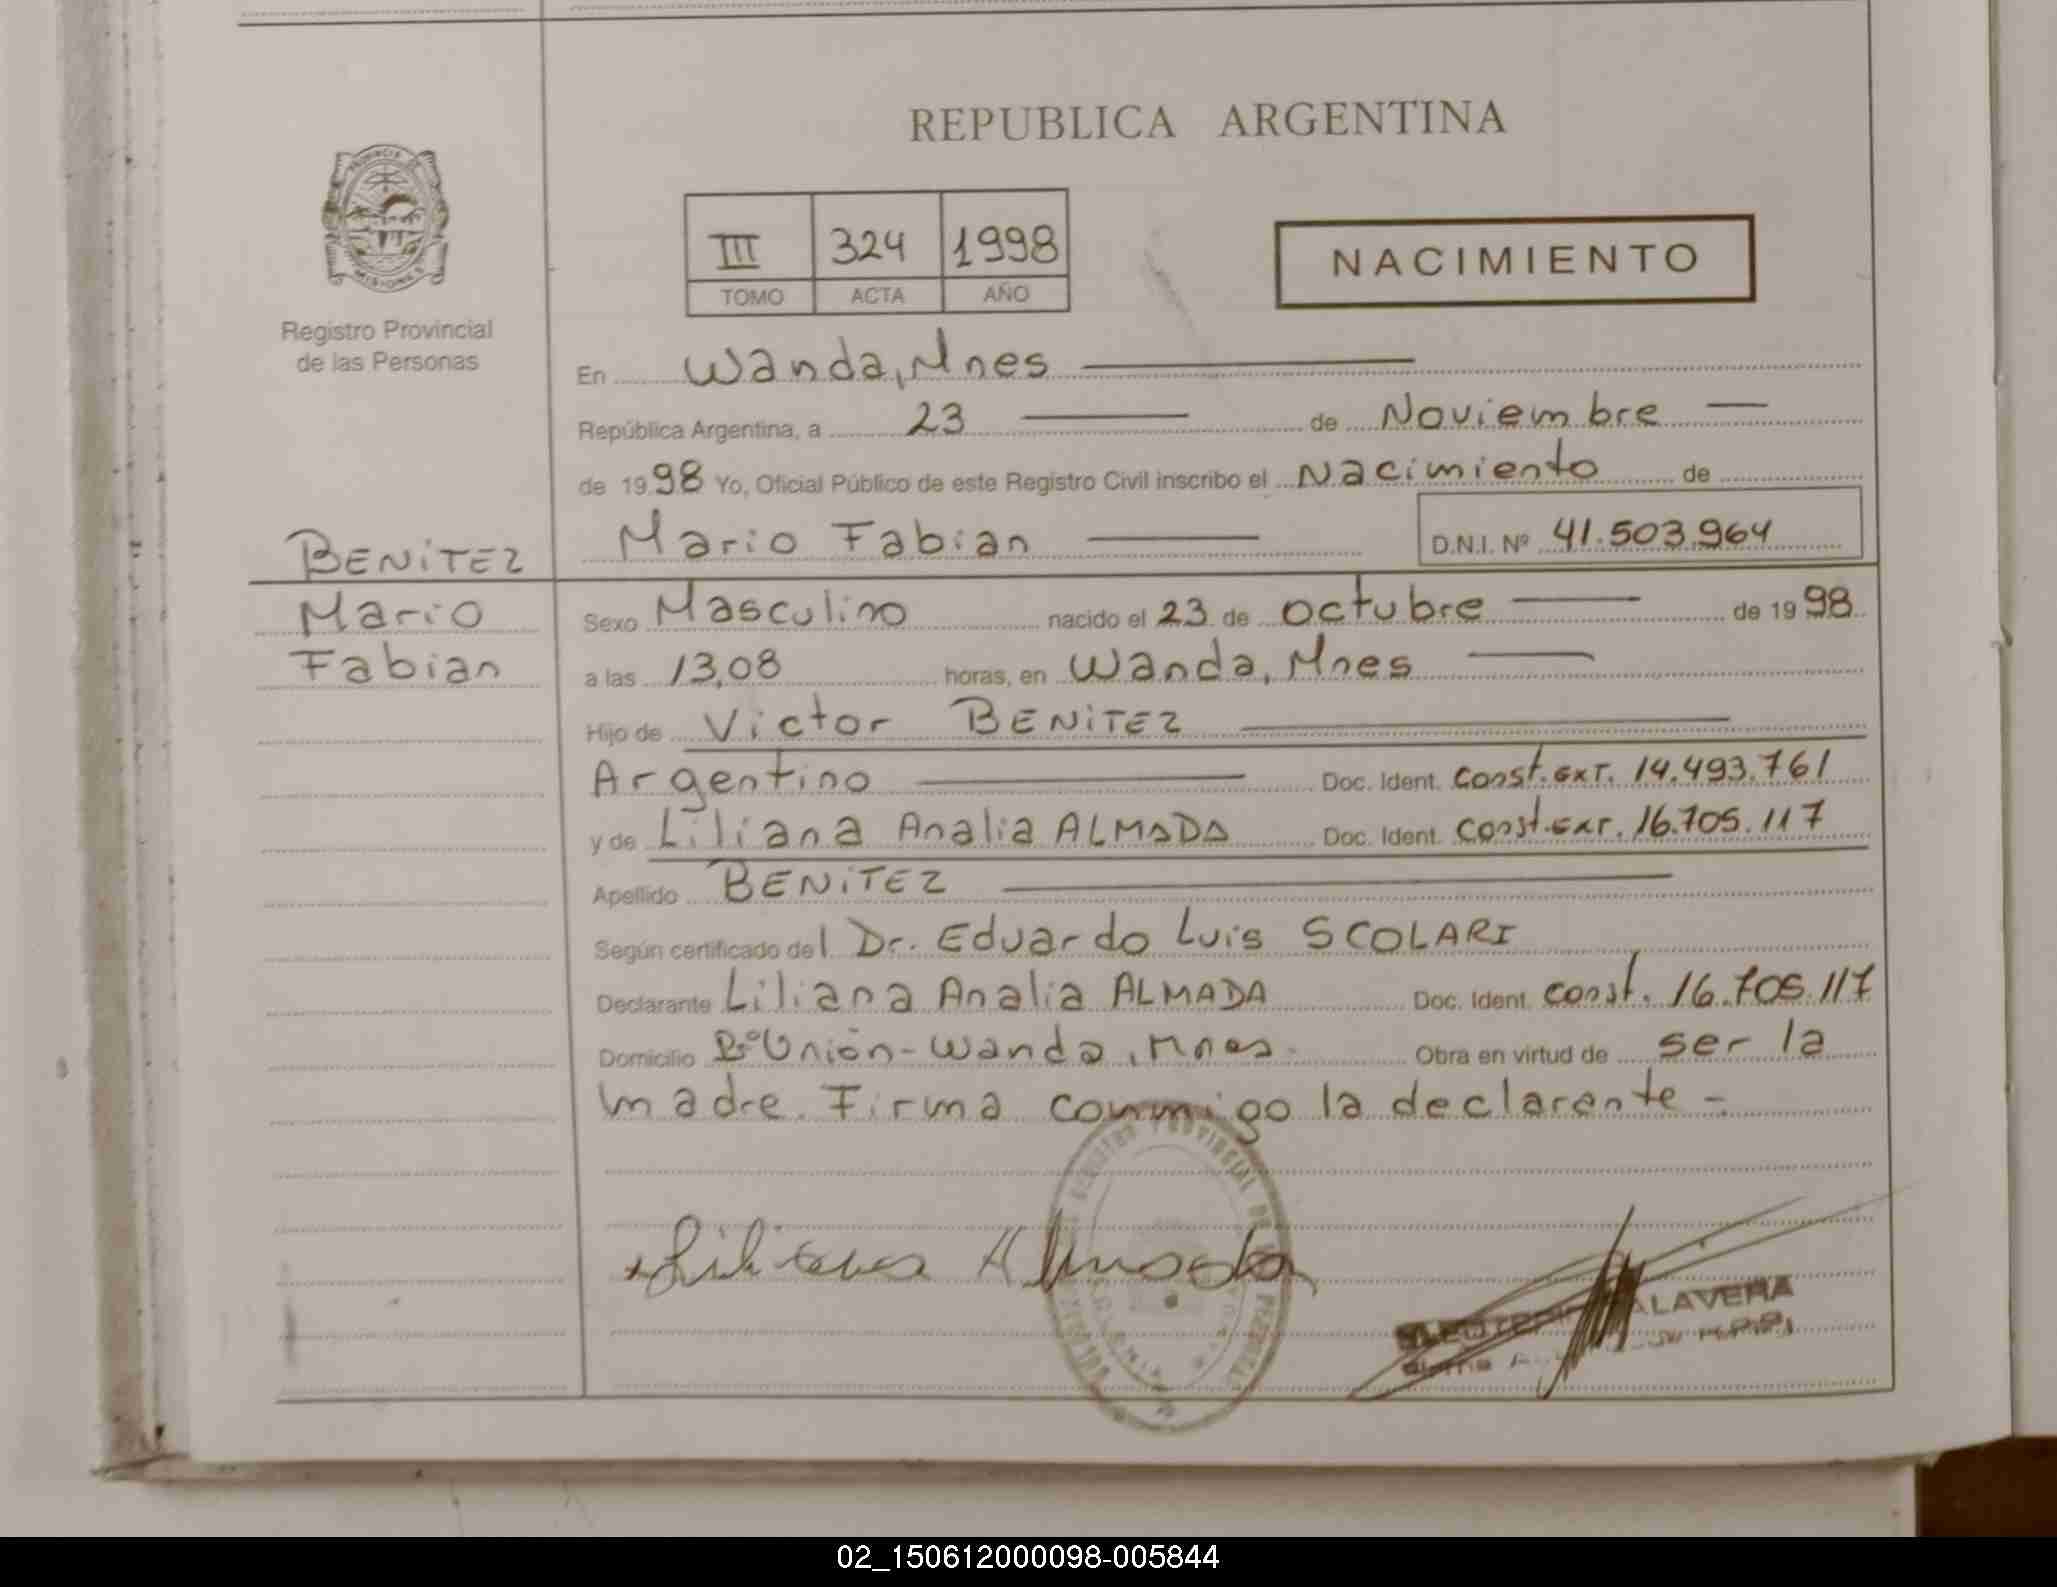 REPUBLICA ARGENTINA
PROVINCIA DE MISIONES
III 324 1998
TOMO ACTA AÑO
NACIMIENTO
Registro Provincial
de las Personas
En Wanda, Mnes
República Argentina, a 23 de Noviembre
de 1998 Yo, Oficial Público de este Registro Civil inscribo el Nacimiento de
Mario Fabian D.N.I. Nº 41.503.964
BENITEZ
Mario
Fabian
Sexo Masculino nacido el 23 de octubre de 1998
a las 13,08 horas, en Wanda, Mnes
Hijo de Victor BENITEZ
Argentino Doc. Ident. const. ext. 14.493.761
y de Liliana Analia ALMADA Doc. Ident. const. ext. 16.705.117
Apellido BENITEZ
Según certificado del Dr. Eduardo Luis SCOLARI
Declarante Liliana Analia ALMADA Doc. Ident. const. 16.705.117
Domicilio Bº Unión - Wanda, Mnes. Obra en virtud de ser la
madre. Firma conmigo la declarante -
Liliana Almada
ALAVERA
02_150612000098-005844